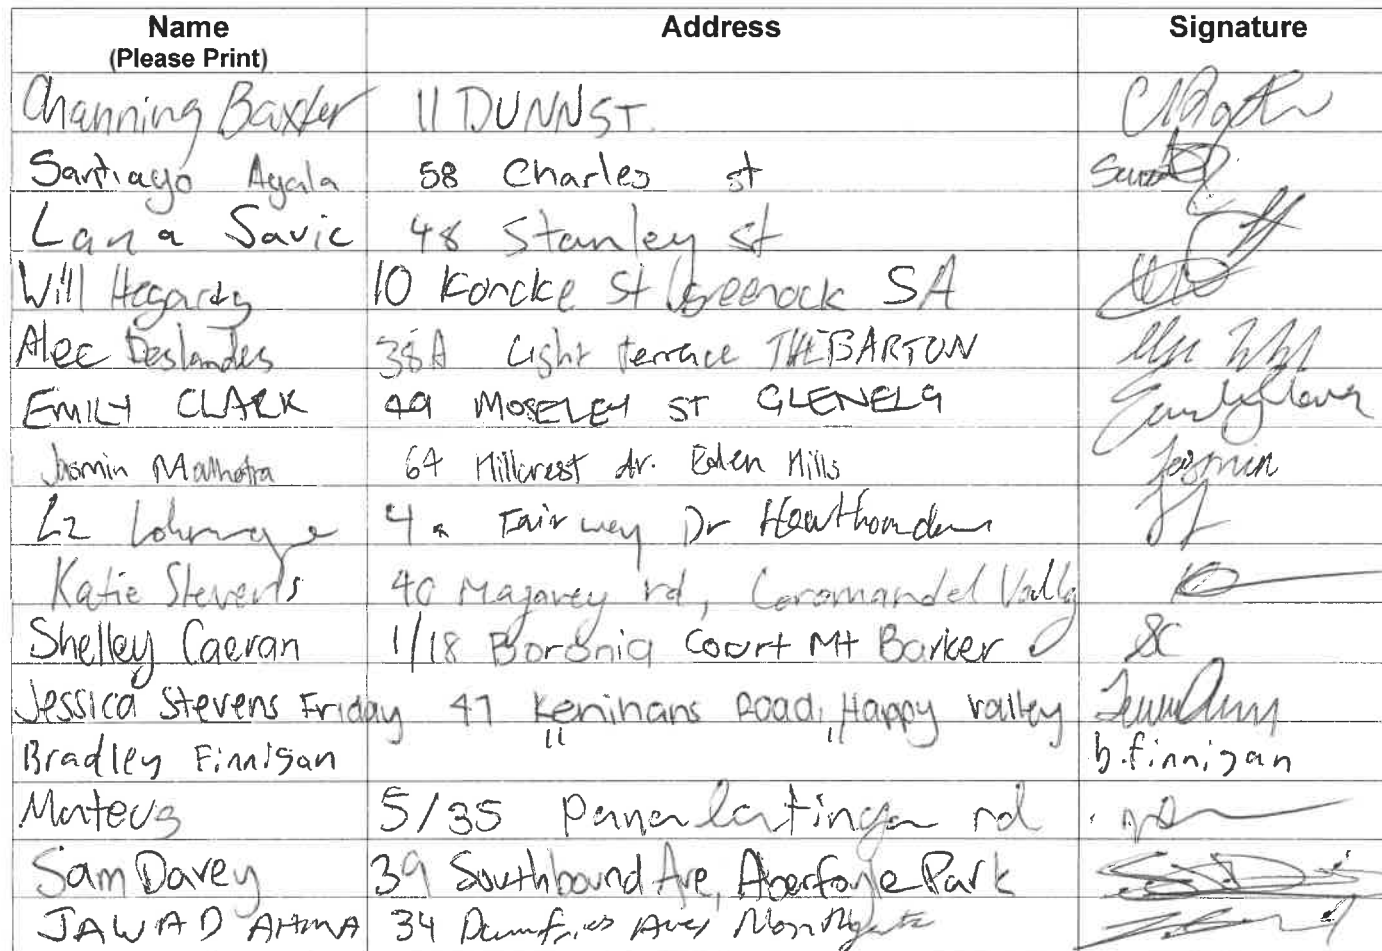 Name Address Signature
(Please Print)
Channing Baxter 11 DUNN ST.
Santiago Ayala 58 Charles st
Lana Savic 48 Stanley st
Will Hegarty 10 Koncke St Greenock SA
Alec Deslandes 38A Light terrace THEBARTON
EMILY CLARK 49 MOSELEY ST GLENELG
Jasmin Malhotra 64 Hillcrest dr. Eden Hills Jasmin
4 Fairway Dr Hawthorndene
Katie Stevens 40 Magarey rd, Coromandel Vally
Shelley Caeran 1/18 Boronia Court Mt Barker SC
Jessica Stevens Friday 47 Kenihans Road, Happy valley
Bradley Finnigan " " b.finnigan
Mateus 5/35 Panalatinga rd
Sam Davey 39 Southbound Ave, Aberfoyle Park
JAWAD AHMA 34 Dumfries Ave